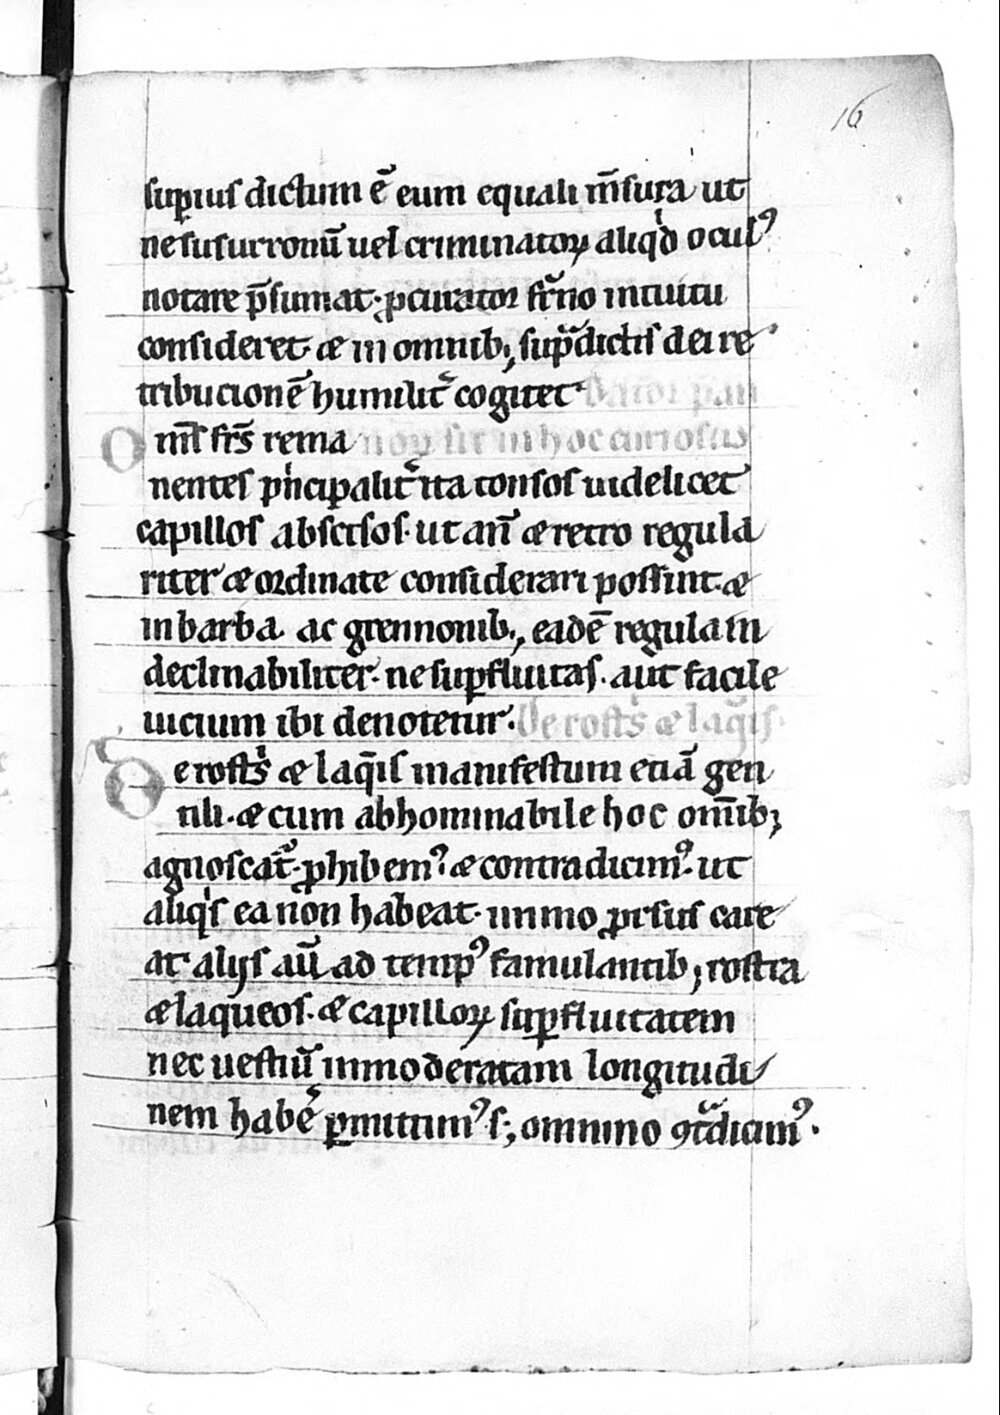 16
supius dictum ē eum equali m̄sura ut
ne susurronū uel criminatoꝝ aliqͥd ocul᾽
notare p̄sumat· ꝓcurator fr̄no intuitu
consideret· æ in omnib; sup̱ᵃdictis dei re
tribucionē humilit᷑ cogitet·
Om̄s fr̄s rema non sit in hoc curiosus
nentes pͥncipalit᷑ ita tonsos uidelicet
capillos abscisos· ut an̄ æ retro regula
riter æ ordinate considerari possint· æ
in barba ac grennonib; eadē regula in
declinabiliter· ne suꝑfluitas· aut facile
uicium ibi denotetur· De rostͥs æ laq̄is·
De rostͥs æ laq̄is manifestum etiā gen
tili· æ cum abhominabile hoc om̄ib;
agnoscat᷑· ꝓhibem᾽ æ contradicim᾽· ut
aliqͥs ea non habeat· immo ꝓrsus care
at· alijs aū ad temp᾽ famulantib; rostra
æ laqueos· æ capilloꝝ suꝑfluitatem
nec uestiū immoderatam longitudi
nem habē᷑ ꝑmittim᾽ s; omnino ꝯtᵃdicim᾽·